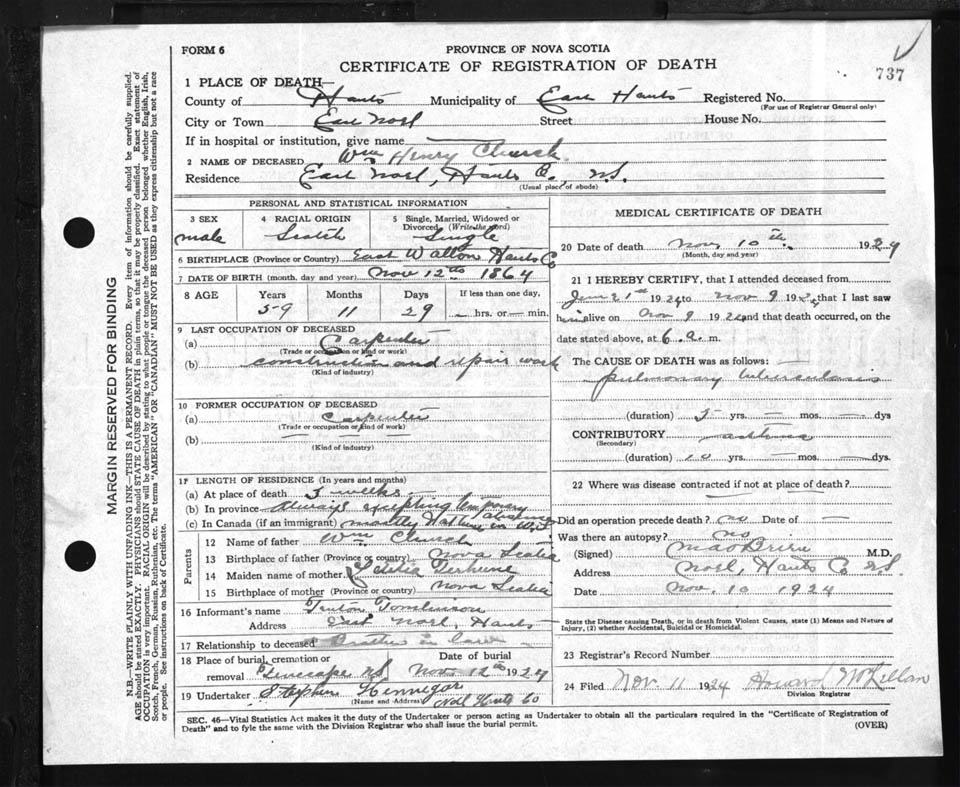 FORM 6
PROVINCE OF NOVA SCOTIA
CERTIFICATE OF REGISTRATION OF DEATH
737
1 PLACE OF DEATH—
County of Hants Municipality of East Hants Registered No.
(For use of Registrar General only)
City or Town East Noel Street House No.
If in hospital or institution, give name
2 NAME OF DECEASED Wm Henry Church
Residence East Noel, Hants Co., N.S.
(Usual place of abode)
PERSONAL AND STATISTICAL INFORMATION
3 SEX 4 RACIAL ORIGIN 5 Single, Married, Widowed or Divorced (Write the word)
male Scotch Single
6 BIRTHPLACE (Province or Country) East Walton Hants Co
7 DATE OF BIRTH (month, day and year) Nov 12th 1864
8 AGE Years Months Days If less than one day,
59 11 29 — hrs. or — min.
9 LAST OCCUPATION OF DECEASED
(a) Carpenter
(Trade or occupation or kind of work)
(b) construction and repair work
(Kind of industry)
10 FORMER OCCUPATION OF DECEASED
(a) Carpenter
(Trade or occupation or kind of work)
(b) — — — —
(Kind of industry)
11 LENGTH OF RESIDENCE (In years and months)
(a) At place of death 3 weeks
(b) In province Always excepting temporary absence
(c) In Canada (if an immigrant) mostly
Parents
12 Name of father Wm Church
13 Birthplace of father (Province or country) Nova Scotia
14 Maiden name of mother Letitia Terhune
15 Birthplace of mother (Province or country) Nova Scotia
16 Informant's name Tomlinson
Address East Noel, Hants
17 Relationship to deceased Brother in law
18 Place of burial, cremation or removal N.S. Date of burial Nov 12th 1924
19 Undertaker Stephen Hennegar
(Name and Address) Noel Hants Co
MEDICAL CERTIFICATE OF DEATH
20 Date of death Nov 10th 1924
(Month, day and year)
21 I HEREBY CERTIFY, that I attended deceased from
June 21st 1924 to Nov 9 1924 that I last saw
him alive on Nov 9 1924 and that death occurred, on the
date stated above, at 6 a. m.
The CAUSE OF DEATH was as follows:
pulmonary tuberculosis
(duration) 5 yrs. — mos. — dys
CONTRIBUTORY asthma
(Secondary)
(duration) 10 yrs. — mos. — dys.
22 Where was disease contracted if not at place of death?
Did an operation precede death? no Date of —
Was there an autopsy? no
(Signed) MacBrien M.D.
Address Noel, Hants Co N.S.
Date Nov. 10 1924
State the Disease causing Death, or in death from Violent Causes, state (1) Means and Nature of Injury, (2) whether Accidental, Suicidal or Homicidal.
23 Registrar's Record Number
24 Filed Nov 11 1924 Howard McLellan
Division Registrar
SEC. 46—Vital Statistics Act makes it the duty of the Undertaker or person acting as Undertaker to obtain all the particulars required in the "Certificate of Registration of
Death" and to fyle the same with the Division Registrar who shall issue the burial permit.
(OVER)
MARGIN RESERVED FOR BINDING
N.B.—WRITE PLAINLY WITH UNFADING INK—THIS IS A PERMANENT RECORD. Every item of information should be carefully supplied.
AGE should be stated EXACTLY. PHYSICIANS should STATE CAUSE OF DEATH in plain terms, so that it may be properly classified. Exact statement of
OCCUPATION is very important. RACIAL ORIGIN will be described by stating to what people or tongue the deceased person belonged whether English, Irish,
Scotch, French, German, Russian, Ruthenian, etc. The terms "AMERICAN" or "CANADIAN" MUST NOT BE USED as they express citizenship but not a race
or people. See instructions on back of Certificate.